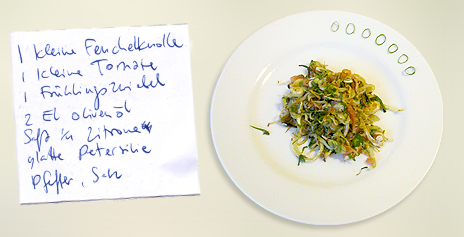 1 kleine Fenchelknolle
1 kleine Tomate
1 Frühlingszwiebel
2 El olivenöl
Saft 1/2 Zitrone
glatte Petersilie
Pfeffer, Salz